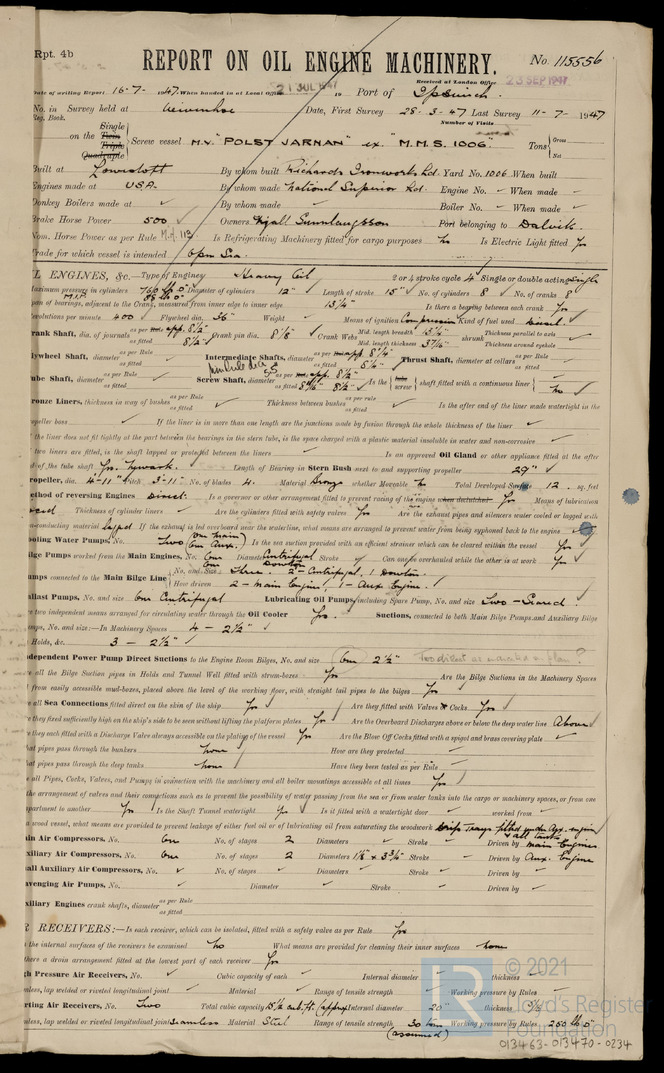 Rpt. 4b
REPORT ON OIL ENGINE MACHINERY.
No. 115556
Received at London Office 23 SEP 1947
Date of writing Report 16-7-1947 When handed in at Local Office 21 JUL 1947 Port of Ipswich
No. in Survey held at Wivenhoe Date, First Survey 28-3-47 Last Survey 11-7-1947
Reg. Book. Number of Visits
on the Single Twin Triple Quadruple Screw vessel M.V. "POLST JARNAN" ex. "M.M.S. 1006". Tons Gross Net
Built at Lowestoft By whom built Richards Ironworks Ld. Yard No. 1006 When built
Engines made at U.S.A. By whom made National Superior Ld. Engine No. When made
Donkey Boilers made at By whom made Boiler No. When made
Brake Horse Power 500 Owners Port belonging to Dalvik.
Nom. Horse Power as per Rule 113 Is Refrigerating Machinery fitted for cargo purposes no Is Electric Light fitted Yes
Trade for which vessel is intended Open Sea.
L ENGINES, &c.—Type of Engines Heavy Oil 2 or 4 stroke cycle 4 Single or double acting Single
Maximum pressure in cylinders 760 lb □" Diameter of cylinders 12" Length of stroke 15" No. of cylinders 8 No. of cranks 8
Span of bearings, adjacent to the Crank, measured from inner edge to inner edge 13 1/4" Is there a bearing between each crank Yes
Revolutions per minute 400 Flywheel dia. 36" Weight Means of ignition Compression Kind of fuel used Diesel.
Crank Shaft, dia. of journals as per Rule app. 8 1/2" as fitted 8 1/2" Crank pin dia. 8 1/8 Crank Webs Mid. length breadth 13 3/4" Mid. length thickness 3 7/16" shrunk Thickness parallel to axis Thickness around eyehole
Flywheel Shaft, diameter as per Rule as fitted Intermediate Shafts, diameter as per Rule app. as fitted Thrust Shaft, diameter at collars as per Rule as fitted
Tube Shaft, diameter as per Rule as fitted Screw Shaft, diameter as per Rule as fitted 8 1/2" Is the tube screw shaft fitted with a continuous liner no
Bronze Liners, thickness in way of bushes as per Rule as fitted Thickness between bushes as per Rule as fitted Is the after end of the liner made watertight in the
propeller boss If the liner is in more than one length are the junctions made by fusion through the whole thickness of the liner
the liner does not fit tightly at the part between the bearings in the stern tube, is the space charged with a plastic material insoluble in water and non-corrosive
two liners are fitted, is the shaft lapped or protected between the liners Is an approved Oil Gland or other appliance fitted at the after
d of the tube shaft Yes. Length of Bearing in Stern Bush next to and supporting propeller 29"
Propeller, dia. 4'-11" Pitch 3'-11" No. of blades 4. Material Bronze whether Moveable No Total Developed Surface 12 sq. feet
ethod of reversing Engines Direct. Is a governor or other arrangement fitted to prevent racing of the engine when declutched Yes Means of lubrication
orced Thickness of cylinder liners Are the cylinders fitted with safety valves Yes Are the exhaust pipes and silencers water cooled or lagged with
n-conducting material Lagged If the exhaust is led overboard near the waterline, what means are arranged to prevent water from being syphoned back to the engine
ooling Water Pumps, No. Two (One Main One Aux.) Is the sea suction provided with an efficient strainer which can be cleared within the vessel Yes
ilge Pumps worked from the Main Engines, No. One One Diameter Centrifugal Downton Stroke Can one be overhauled while the other is at work Yes
umps connected to the Main Bilge Line No. and Size Three. 2 - Centrifugal, 1 Downton.
How driven 2 - Main Engine, 1 - Aux Engine.
allast Pumps, No. and size One Centrifugal Lubricating Oil Pumps, including Spare Pump, No. and size Two -
e two independent means arranged for circulating water through the Oil Cooler Yes. Suctions, connected to both Main Bilge Pumps and Auxiliary Bilge
mps, No. and size:—In Machinery Spaces 4 - 2 1/2"
Holds, &c. 3 - 2 1/2"
ndependent Power Pump Direct Suctions to the Engine Room Bilges, No. and size One 2 1/2" Two direct as indicated on plan?
e all the Bilge Suction pipes in Holds and Tunnel Well fitted with strum-boxes Yes Are the Bilge Suctions in the Machinery Spaces
from easily accessible mud-boxes, placed above the level of the working floor, with straight tail pipes to the bilges Yes
e all Sea Connections fitted direct on the skin of the ship Yes Are they fitted with Valves or Cocks Yes
e they fixed sufficiently high on the ship's side to be seen without lifting the platform plates Yes Are the Overboard Discharges above or below the deep water line Above
e they each fitted with a Discharge Valve always accessible on the plating of the vessel Yes Are the Blow Off Cocks fitted with a spigot and brass covering plate
hat pipes pass through the bunkers none How are they protected
hat pipes pass through the deep tanks none Have they been tested as per Rule
e all Pipes, Cocks, Valves, and Pumps in connection with the machinery and all boiler mountings accessible at all times Yes
the arrangement of valves and their connections such as to prevent the possibility of water passing from the sea or from water tanks into the cargo or machinery spaces, or from one
partment to another Yes Is the Shaft Tunnel watertight Yes Is it fitted with a watertight door worked from
a wood vessel, what means are provided to prevent leakage of either fuel oil or of lubricating oil from saturating the woodwork Drip Trays fitted under Aux. engine & all tanks
ain Air Compressors, No. One No. of stages 2 Diameters Stroke Driven by Main Engine
uxiliary Air Compressors, No. One No. of stages 2 Diameters 1 1/8" x 3 3/4" Stroke Driven by Aux. Engine
all Auxiliary Air Compressors, No. No. of stages Diameters Stroke Driven by
avenging Air Pumps, No. Diameter Stroke Driven by
uxiliary Engines crank shafts, diameter as per Rule as fitted
R RECEIVERS:—Is each receiver, which can be isolated, fitted with a safety valve as per Rule Yes
n the internal surfaces of the receivers be examined no What means are provided for cleaning their inner surfaces none
there a drain arrangement fitted at the lowest part of each receiver Yes
gh Pressure Air Receivers, No. Cubic capacity of each Internal diameter thickness
mless, lap welded or riveted longitudinal joint Material Range of tensile strength Working pressure by Rules
rting Air Receivers, No. Two Total cubic capacity 15 1/2 cub. ft. (approx) Internal diameter 20" thickness
mless, lap welded or riveted longitudinal joint Seamless Material Steel Range of tensile strength 30 tons (assumed) Working pressure by Rules 250 lb □"
© 2021
Lloyd's Register
Foundation
013463-013470-0234